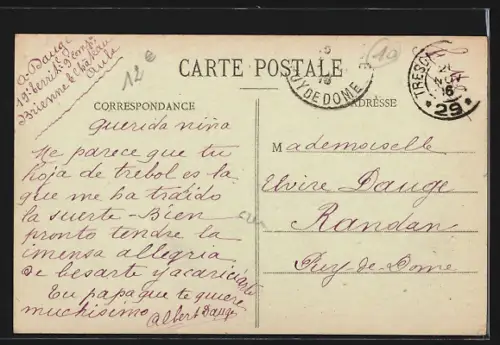 A. Dauge
19e territ. 9e Comp.
Brienne le Château
Aube
12e
10
CARTE POSTALE
PUY DE DOME
TRESOR
29
CORRESPONDANCE
ADRESSE
querida niña
Me parece que tu
hoja de trebol es la
que me ha traido
la suerte - Bien
pronto tendre la
imensa allegria
de besarte y acariciarte
Tu papa que te quiere
muchisimo
Albert Dauge
Mademoiselle
Elvire Dauge
Randan
Puy-de-Dome